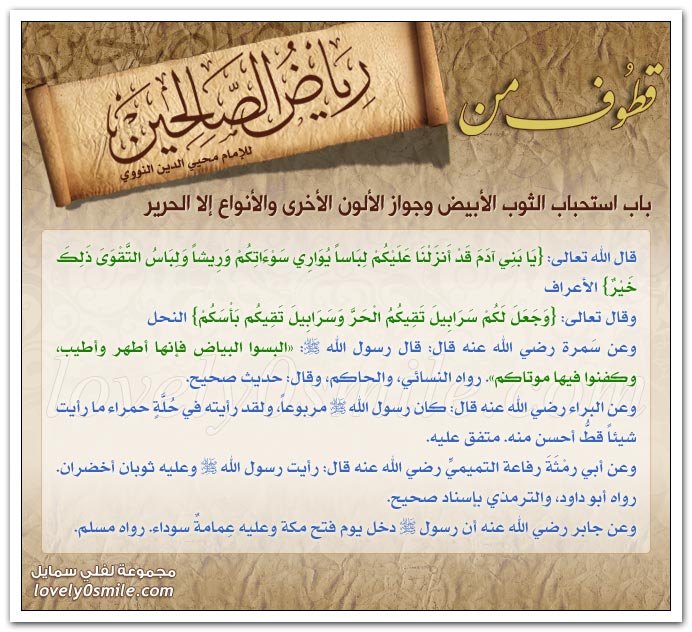 قطوف من
رياض الصالحين
للإمام محيي الدين النووي
باب استحباب الثوب الأبيض وجواز الألون الأخرى والأنواع إلا الحرير
قال الله تعالى: {يَا بَنِي آدَمَ قَدْ أَنزَلْنَا عَلَيْكُمْ لِبَاساً يُوَارِي سَوْءَاتِكُمْ وَرِيشاً وَلِبَاسُ التَّقْوَىَ ذَلِكَ
خَيْرٌ} الأعراف
وقال تعالى: {وَجَعَلَ لَكُمْ سَرَابِيلَ تَقِيكُمُ الْحَرَّ وَسَرَابِيلَ تَقِيكُم بَأْسَكُمْ} النحل
وعن سَمرة رضي الله عنه قال: قال رسول الله ﷺ: «البسوا البياض فإنها أطهر وأطيب،
وكفنوا فيها موتاكم». رواه النسائي، والحاكم، وقال: حديث صحيح.
وعن البراء رضي الله عنه قال: كان رسول الله ﷺ مربوعاً، ولقد رأيته في حُلَّةٍ حمراء ما رأيت
شيئاً قطُّ أحسن منه. متفق عليه.
وعن أبي رمْثَةَ رفاعة التميميِّ رضي الله عنه قال: رأيت رسول الله ﷺ وعليه ثوبان أخضران.
رواه أبو داود، والترمذي بإسناد صحيح.
وعن جابر رضي الله عنه أن رسول ﷺ دخل يوم فتح مكة وعليه عِمامةٌ سوداء. رواه مسلم.
lovely0smile.com
مجموعة لفلي سمايل
lovely0smile.com